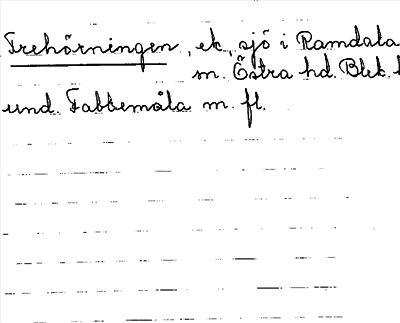 Trehörningen, ek., sjö i Ramdala
sn. Östra hd. Blek. l
und. Fabbemåla m. fl.